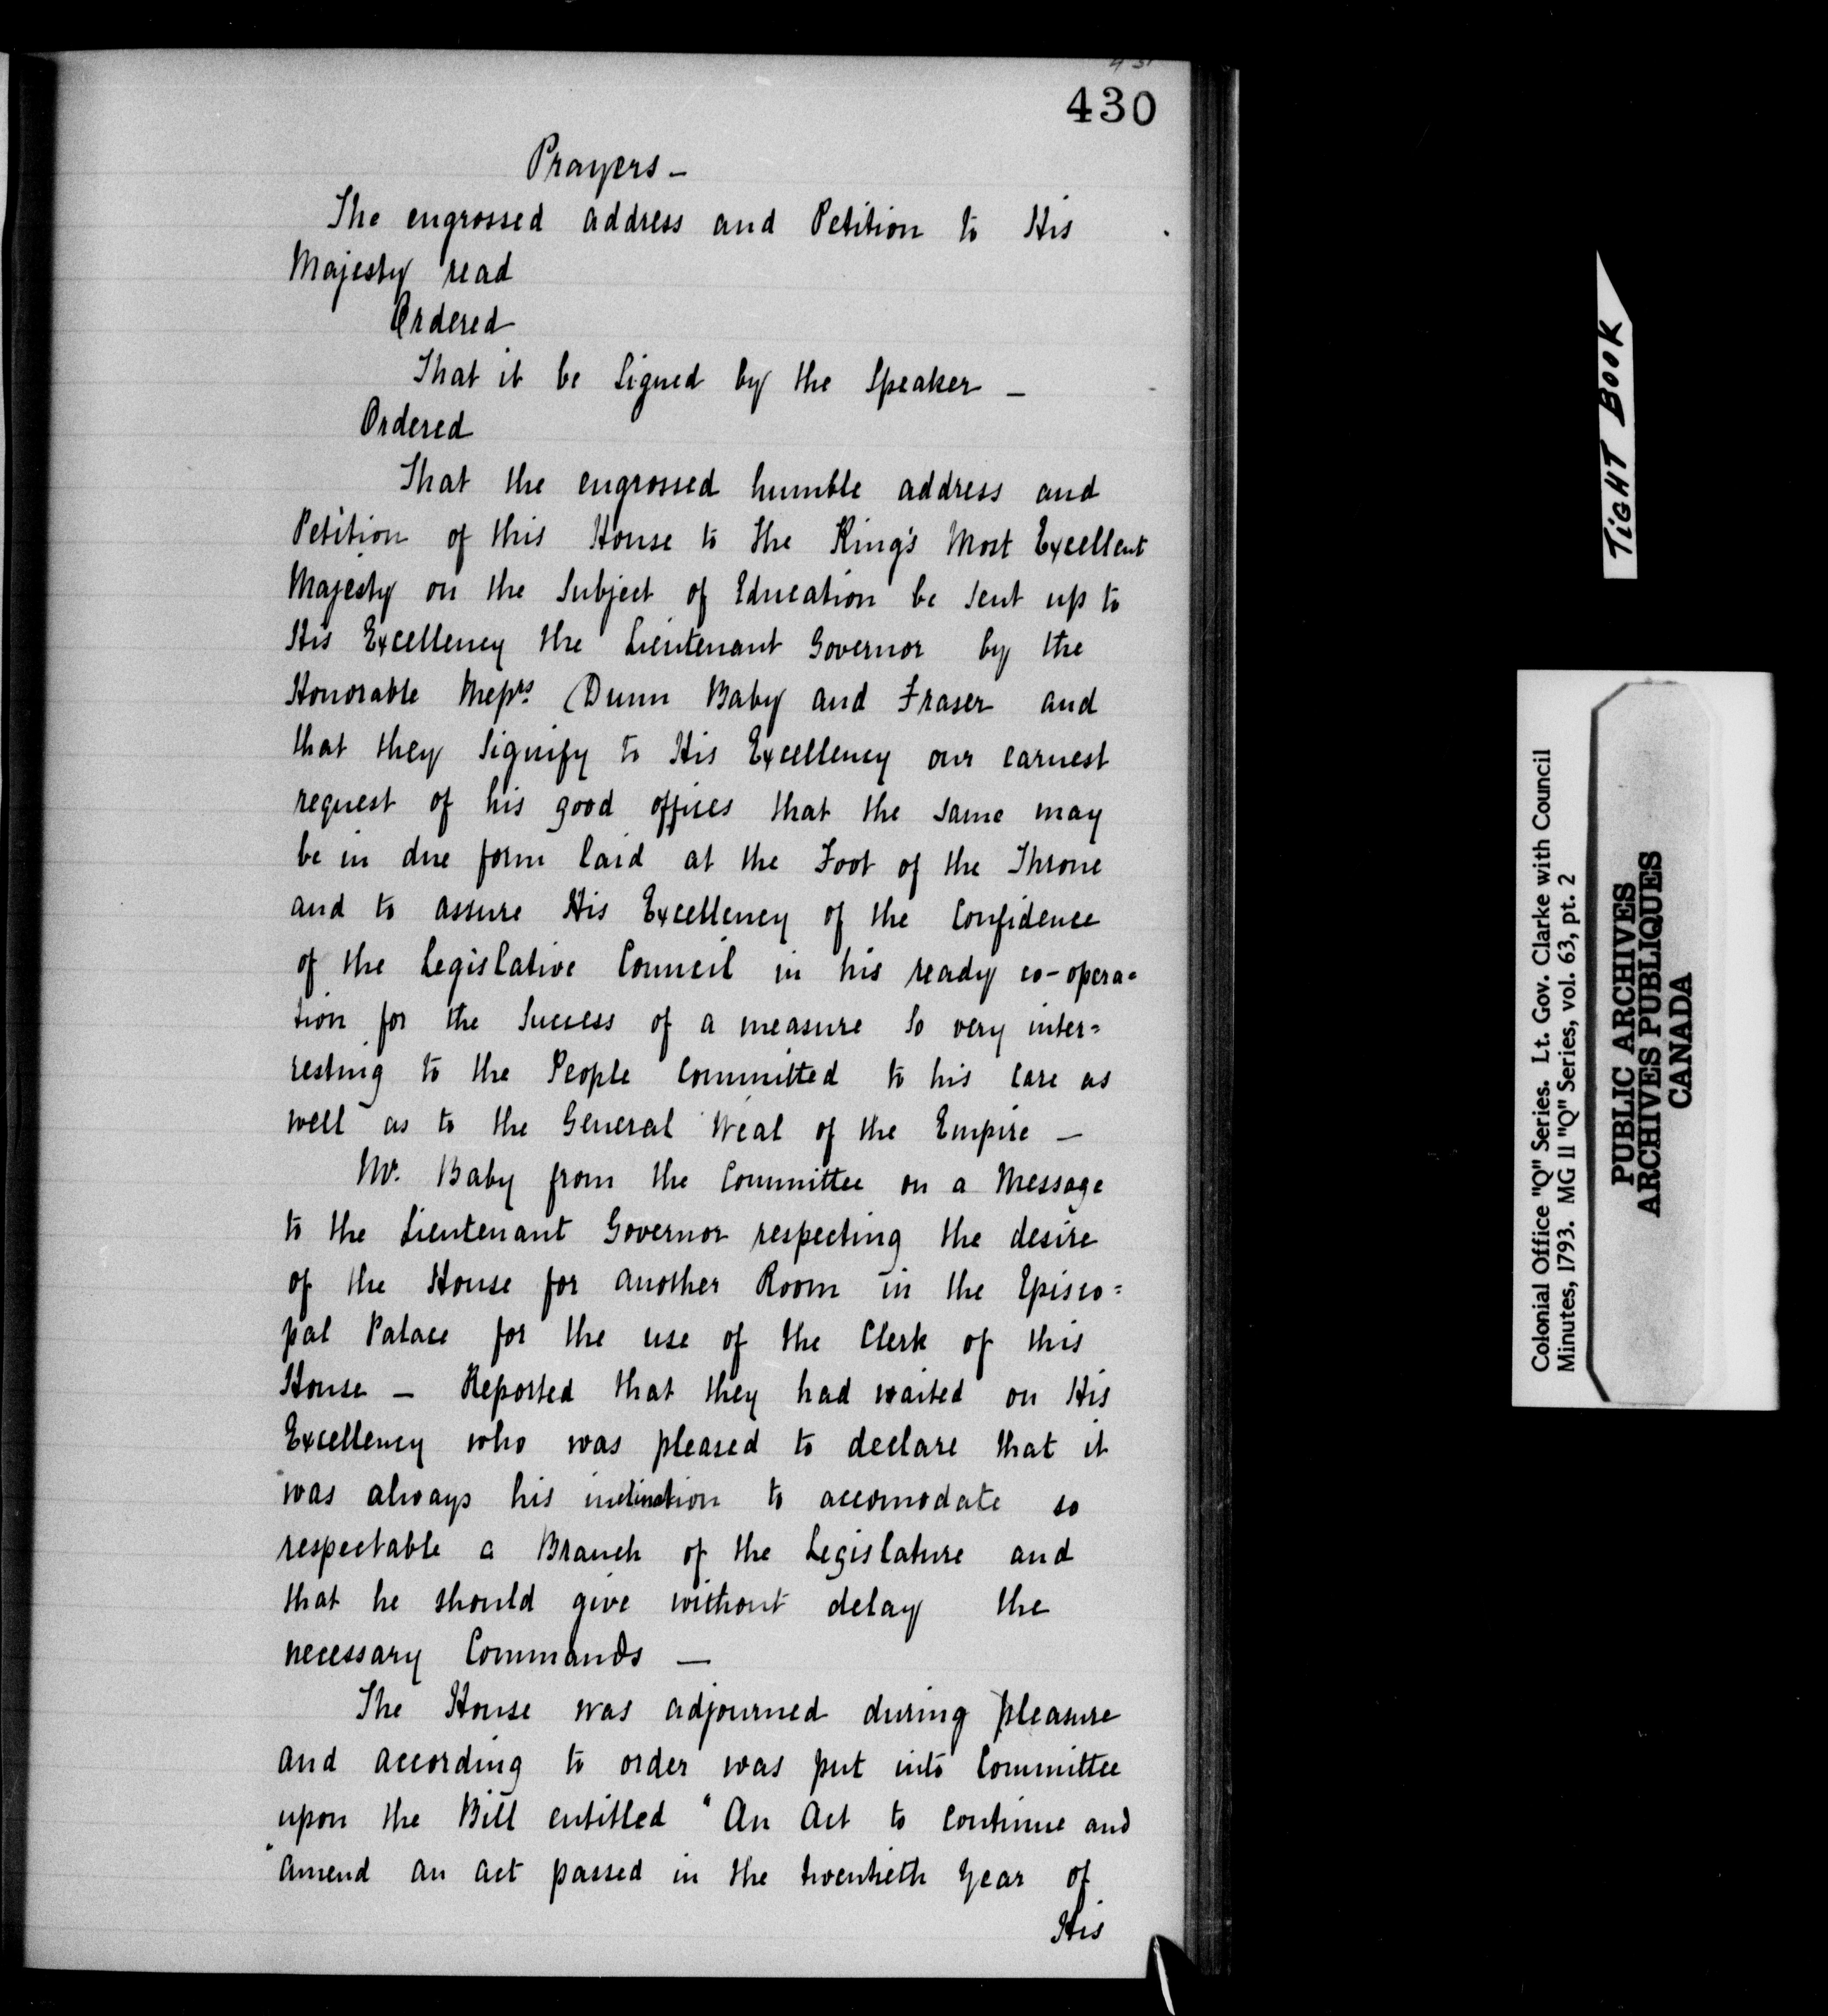 430
Prayers -
The engrossed address and Petition to His
Majesty read
Ordered
That it be Signed by the Speaker -
Ordered
That the engrossed humble address and
Petition of this House to the King's Most Excellent
Majesty on the Subject of Education be Sent up to
His Excellency the Lieutenant Governor by the
Honorable Messrs. Dunn Baby and Fraser and
that they Signify to His Excellency our earnest
request of his good offices that the same may
be in due form laid at the Foot of the Throne
and to assure His Excellency of the Confidence
of the Legislative Council in his ready co-opera=
tion for the Success of a measure So very inter=
resting to the People Committed to his Care as
well as to the General Weal of the Empire -
Mr. Baby from the Committee on a Message
to the Lieutenant Governor respecting the desire
of the House for another Room in the Episco=
pal Palace for the use of the Clerk of this
House - Reported that they had waited on His
Excellency who was pleased to declare that it
was always his inclination to accomodate so
respectable a Branch of the Legislature and
that he should give without delay the
necessary Commands -
The House was adjourned during pleasure
and according to order was put into Committee
upon the Bill entitled "An Act to Continue and
"amend an act passed in the twentieth Year of
His
TIGHT BOOK
Colonial Office "Q" Series. Lt. Gov. Clarke with Council
Minutes, 1793. MG 11 "Q" Series, vol. 63, pt. 2
PUBLIC ARCHIVES
ARCHIVES PUBLIQUES
CANADA